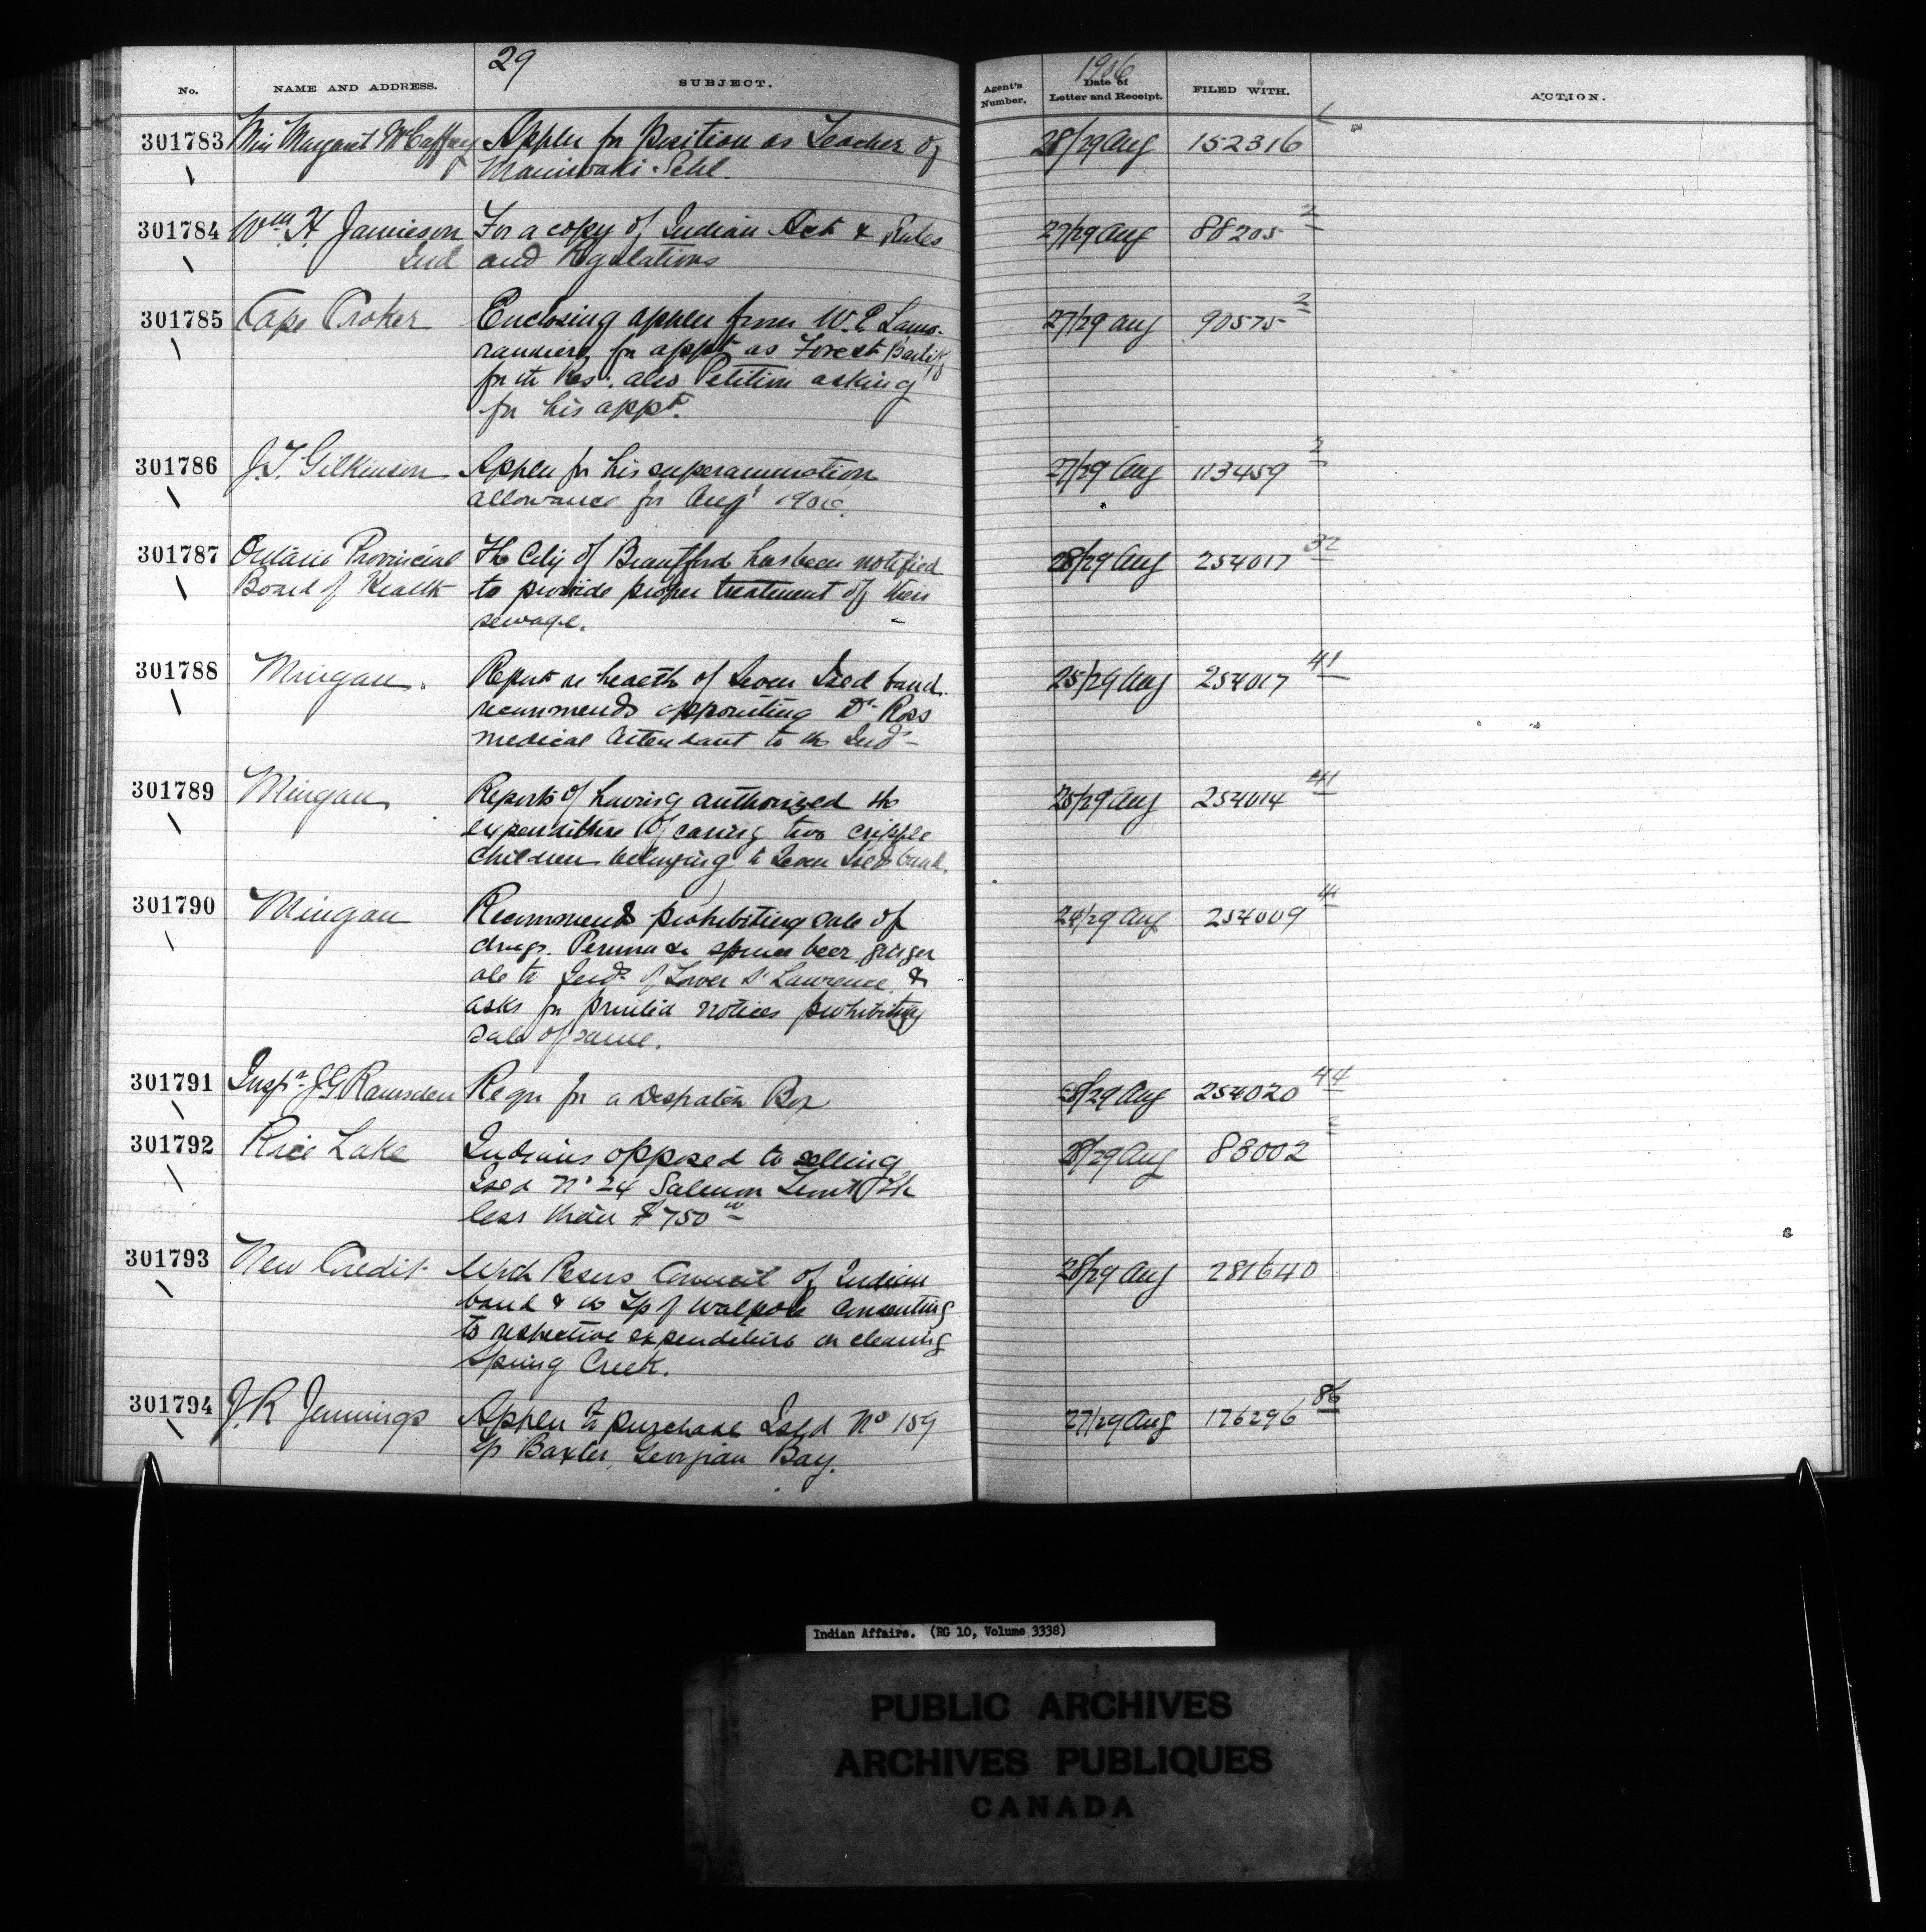 29
1906
No. NAME AND ADDRESS. SUBJECT. Agent's Number. Date of Letter and Receipt. FILED WITH. ACTION.
301783 Miss Margaret McCaffrey Applcn for position as Teacher of 28/29 Aug 152316
Maniwaki Schl.
301784 Wm H. Jamieson For a copy of Indian Act & Rules 27/29 Aug 88205 2
Ind and Regulations
301785 Cape Croker Enclosing applcn from W. E. Lamo- 27/29 Aug 90575 2
randiere for appt as Forest Bailiff
for th Res. also Petition asking
for his appt.
301786 J. T. Gilkinson Applcn for his superannuation 27/29 Aug 113459 2
allowance for Augt 1906.
301787 Ontario Provincial The City of Brantford has been notified 28/29 Aug 254017 32
Board of Health to provide proper treatment of their
sewage.
301788 Mingan. Report re health of Seven Isld band. 25/29 Aug 254017 41
recommends appointing Dr. Ross
medical attendant to th Inds
301789 Mingan Reports of having authorized the 25/29 Aug 254014 41
expenditure of caring two cripple
children belonging to Seven Isld band.
301790 Mingan Recommends prohibiting sale of 24/29 Aug 254009 41
drugs. Peruna & spruce beer, ginger
ale to Inds of Lower St Lawrence &
asks for printed notices prohibiting
sale of same.
301791 Inspr J G Ramsden Reqn for a Despatch Box 28/29 Aug 254020 44
301792 Rice Lake Indians opposed to selling 28/29 Aug 88002 2
Isld No 24 Salmon Trout Lk
less than $750 00
301793 New Credit With Resns Council of Indian 28/29 Aug 281640
band & th Tp of Walpole consenting
to respective expenditure on cleaning
Spring Creek.
301794 J. R Jennings Applcn to purchase Isld No 159 27/29 Aug 176296 86
Tp Baxter, Georgian Bay.
Indian Affairs. (RG 10, Volume 3338)
PUBLIC ARCHIVES
ARCHIVES PUBLIQUES
CANADA